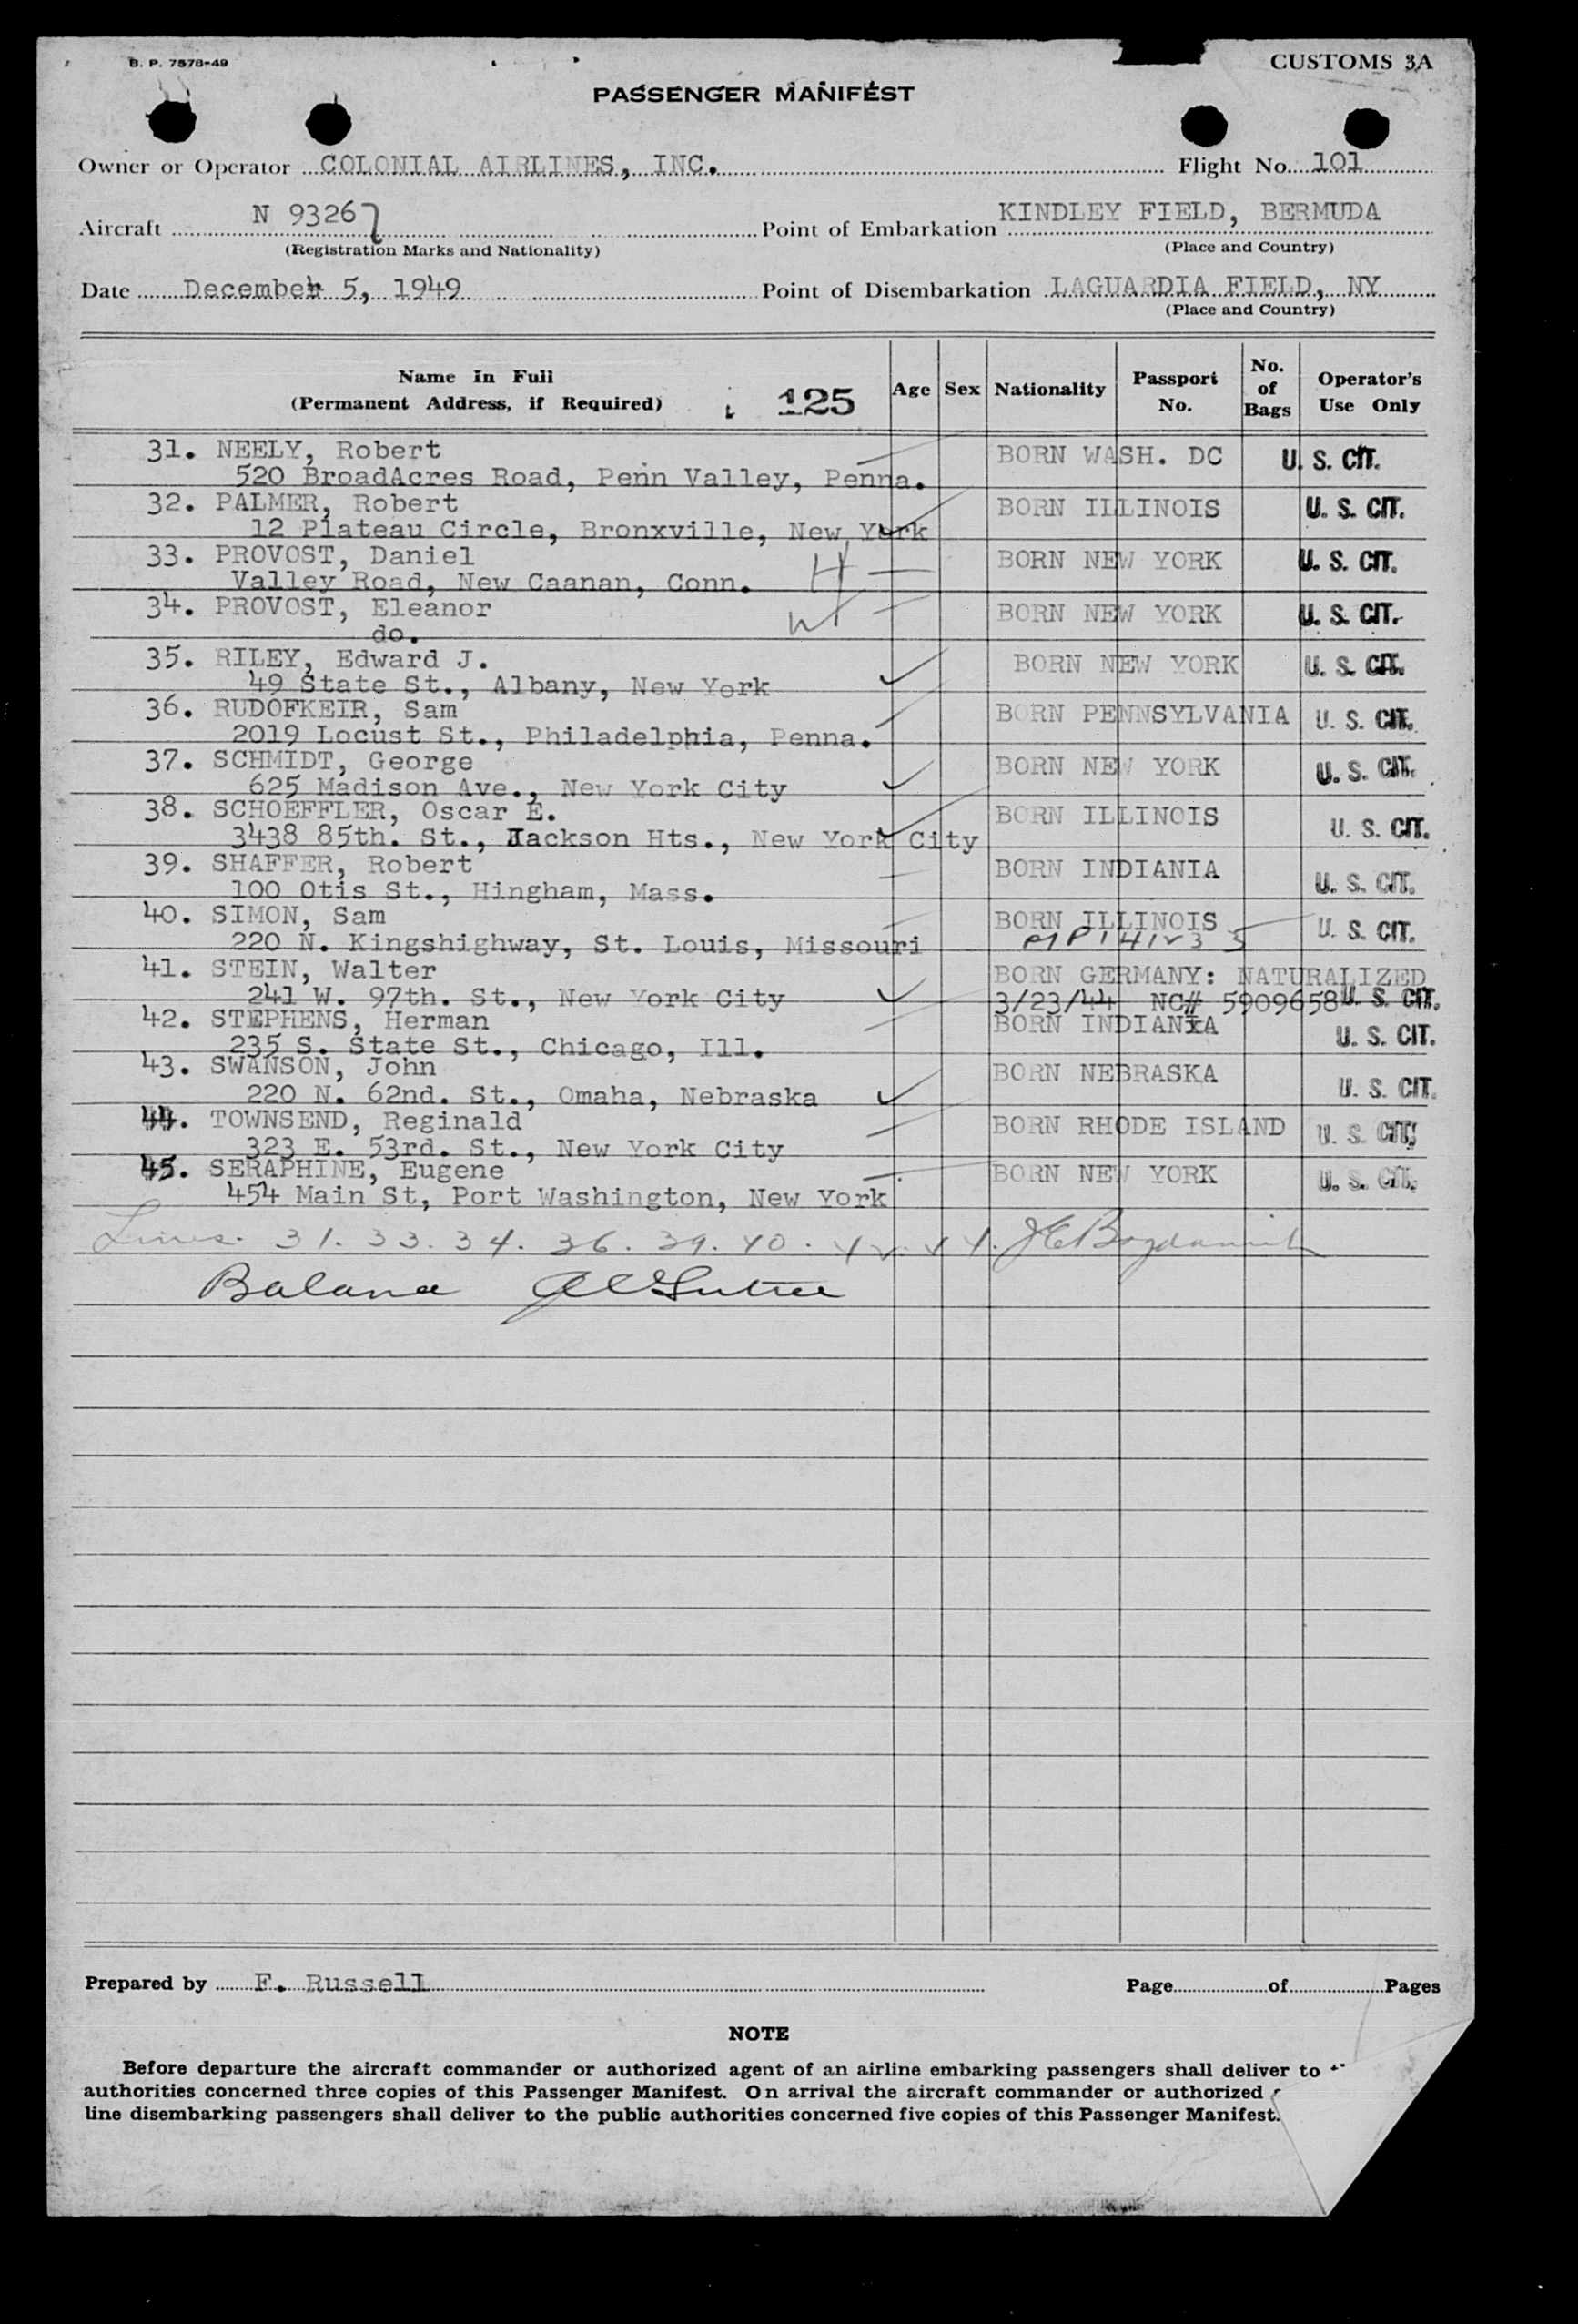 B. P. 7578-49
CUSTOMS 3A
PASSENGER MANIFEST
Owner or Operator COLONIAL AIRLINES, INC. Flight No. 101
Aircraft N 93267 Point of Embarkation KINDLEY FIELD, BERMUDA
(Registration Marks and Nationality) (Place and Country)
Date December 5, 1949 Point of Disembarkation LAGUARDIA FIELD, NY
(Place and Country)
Name In Full (Permanent Address, if Required) 125 Age Sex Nationality Passport No. No. of Bags Operator's Use Only
31. NEELY, Robert BORN WASH. DC U. S. CIT.
520 BroadAcres Road, Penn Valley, Penna.
32. PALMER, Robert BORN ILLINOIS U. S. CIT.
12 Plateau Circle, Bronxville, New York
33. PROVOST, Daniel BORN NEW YORK U. S. CIT.
Valley Road, New Caanan, Conn. H
34. PROVOST, Eleanor BORN NEW YORK U. S. CIT.
do.
35. RILEY, Edward J. BORN NEW YORK U. S. CIT.
49 State St., Albany, New York
36. RUDOFKEIR, Sam BORN PENNSYLVANIA U. S. CIT.
2019 Locust St., Philadelphia, Penna.
37. SCHMIDT, George BORN NEW YORK U. S. CIT.
625 Madison Ave., New York City
38. SCHOEFFLER, Oscar E. BORN ILLINOIS U. S. CIT.
3438 85th. St., Jackson Hts., New York City
39. SHAFFER, Robert BORN INDIANIA U. S. CIT.
100 Otis St., Hingham, Mass.
40. SIMON, Sam BORN ILLINOIS U. S. CIT.
220 N. Kingshighway, St. Louis, Missouri
41. STEIN, Walter BORN GERMANY: NATURALIZED
241 W. 97th. St., New York City 3/23/44 NC# 5909658 U. S. CIT.
42. STEPHENS, Herman BORN INDIANA U. S. CIT.
235 S. State St., Chicago, Ill.
43. SWANSON, John BORN NEBRASKA U. S. CIT.
220 N. 62nd. St., Omaha, Nebraska
44. TOWNSEND, Reginald BORN RHODE ISLAND U. S. CIT.
323 E. 53rd. St., New York City
45. SERAPHINE, Eugene BORN NEW YORK U. S. CIT.
454 Main St, Port Washington, New York
Lines. 31. 33. 34. 36. 39. 40. 42. 44.
Balance
Prepared by F. Russell Page of Pages
NOTE
Before departure the aircraft commander or authorized agent of an airline embarking passengers shall deliver to
authorities concerned three copies of this Passenger Manifest. On arrival the aircraft commander or authorized
line disembarking passengers shall deliver to the public authorities concerned five copies of this Passenger Manifest.